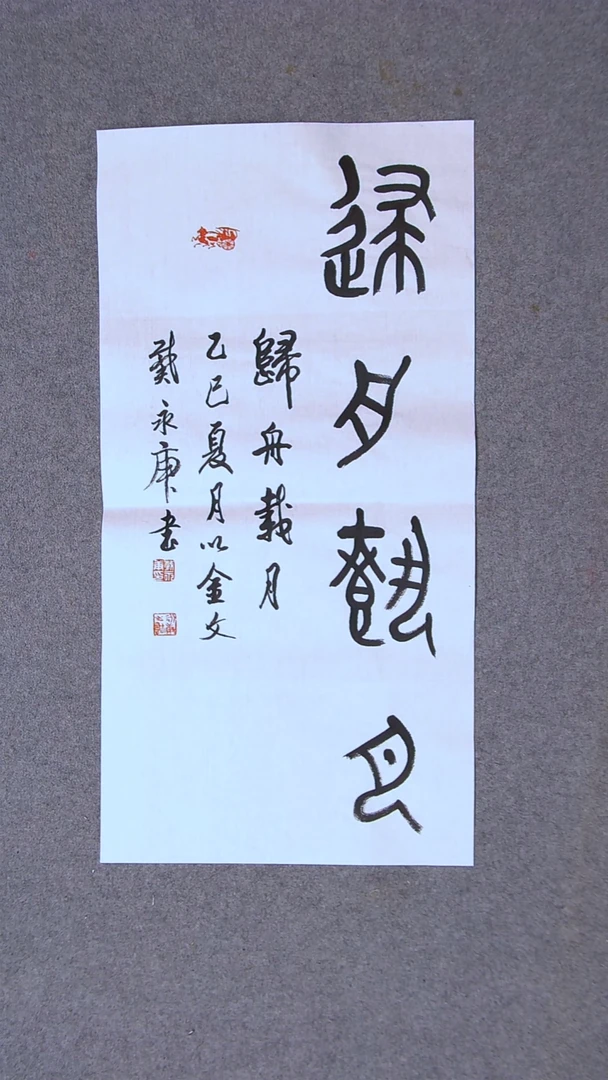 歸舟載月
歸舟載月
乙巳夏月以金文
戴永庚書